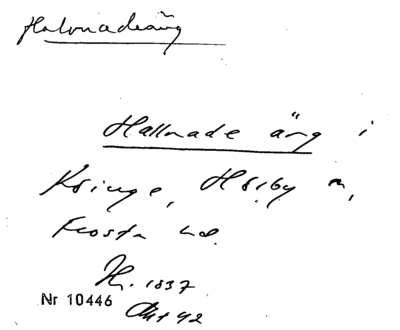 Halvnadeäng
Hallnade äng i
Kringe, Hörby sn,
Frosta hd.
H. 1837
Nr 10446
Akt 42